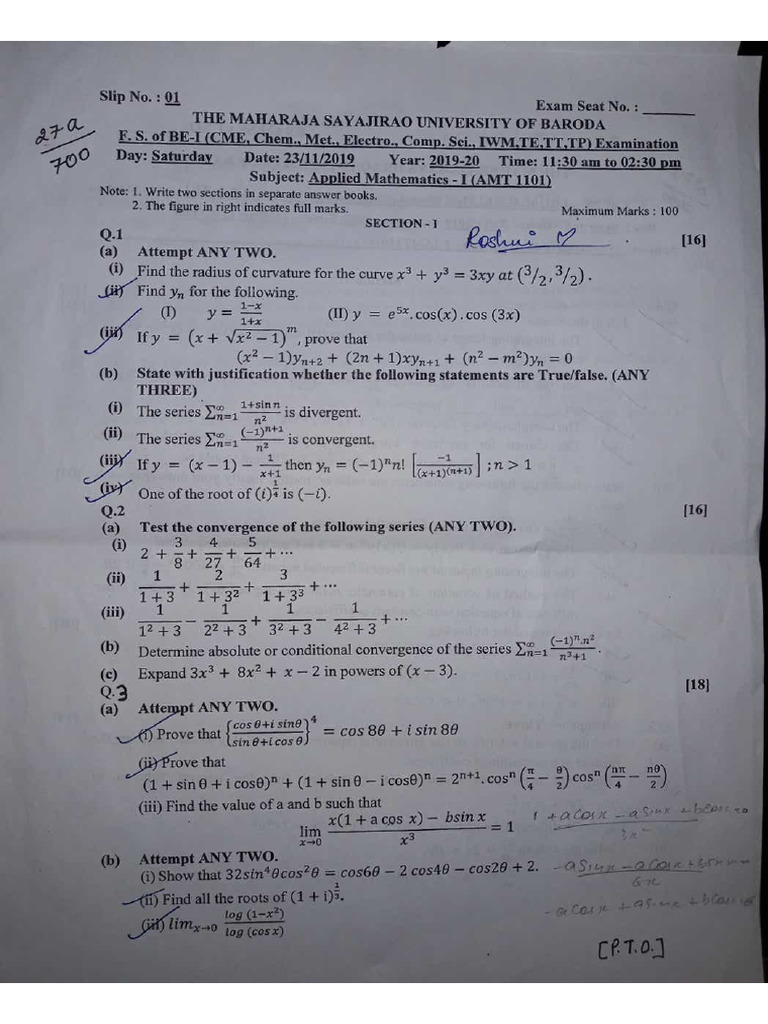 Slip No. : 01
Exam Seat No. : ______
27a
700
THE MAHARAJA SAYAJIRAO UNIVERSITY OF BARODA
F. S. of BE-I (CME, Chem., Met., Electro., Comp. Sci., IWM,TE,TT,TP) Examination
Day: Saturday Date: 23/11/2019 Year: 2019-20 Time: 11:30 am to 02:30 pm
Subject: Applied Mathematics - I (AMT 1101)
Note: 1. Write two sections in separate answer books.
2. The figure in right indicates full marks. Maximum Marks : 100
SECTION - I
Roshni M
Q.1 [16]
(a) Attempt ANY TWO.
(i) Find the radius of curvature for the curve x³ + y³ = 3xy at (3/2, 3/2) .
(ii) Find yₙ for the following.
(I) y = (1−x)/(1+x) (II) y = e^{5x}. cos(x) . cos (3x)
(iii) If y = (x + √(x² − 1))^m, prove that
(x² − 1)y_{n+2} + (2n + 1)xy_{n+1} + (n² − m²)y_n = 0
(b) State with justification whether the following statements are True/false. (ANY
THREE)
(i) The series ∑_{n=1}^{∞} (1+sin n)/n² is divergent.
(ii) The series ∑_{n=1}^{∞} (−1)^{n+1}/n² is convergent.
(iii) If y = (x − 1) − 1/(x+1) then y_n = (−1)^n n! [−1/(x+1)^{(n+1)}] ; n > 1
(iv) One of the root of (i)^{1/4} is (−i).
Q.2 [16]
(a) Test the convergence of the following series (ANY TWO).
(i) 2 + 3/8 + 4/27 + 5/64 + ⋯
(ii) 1/(1 + 3) + 2/(1 + 3²) + 3/(1 + 3³) + ⋯
(iii) 1/(1² + 3) − 1/(2² + 3) + 1/(3² + 3) − 1/(4² + 3) + ⋯
(b) Determine absolute or conditional convergence of the series ∑_{n=1}^{∞} (−1)^n.n²/(n³+1).
(c) Expand 3x³ + 8x² + x − 2 in powers of (x − 3).
Q.3 [18]
(a) Attempt ANY TWO.
(i) Prove that {(cos θ+i sinθ)/(sin θ+i cos θ)}⁴ = cos 8θ + i sin 8θ
(ii) Prove that
(1 + sin θ + i cosθ)^n + (1 + sin θ − i cosθ)^n = 2^{n+1}. cos^n (π/4 − θ/2) cos^n (nπ/4 − nθ/2)
(iii) Find the value of a and b such that
lim_{x→0} (x(1 + a cos x) − bsin x)/x³ = 1
(b) Attempt ANY TWO.
(i) Show that 32sin⁴θcos²θ = cos6θ − 2 cos4θ − cos2θ + 2.
(ii) Find all the roots of (1 + i)^{1/3}.
(iii) lim_{x→0} log (1−x²)/log (cos x)
[P.T.O.]